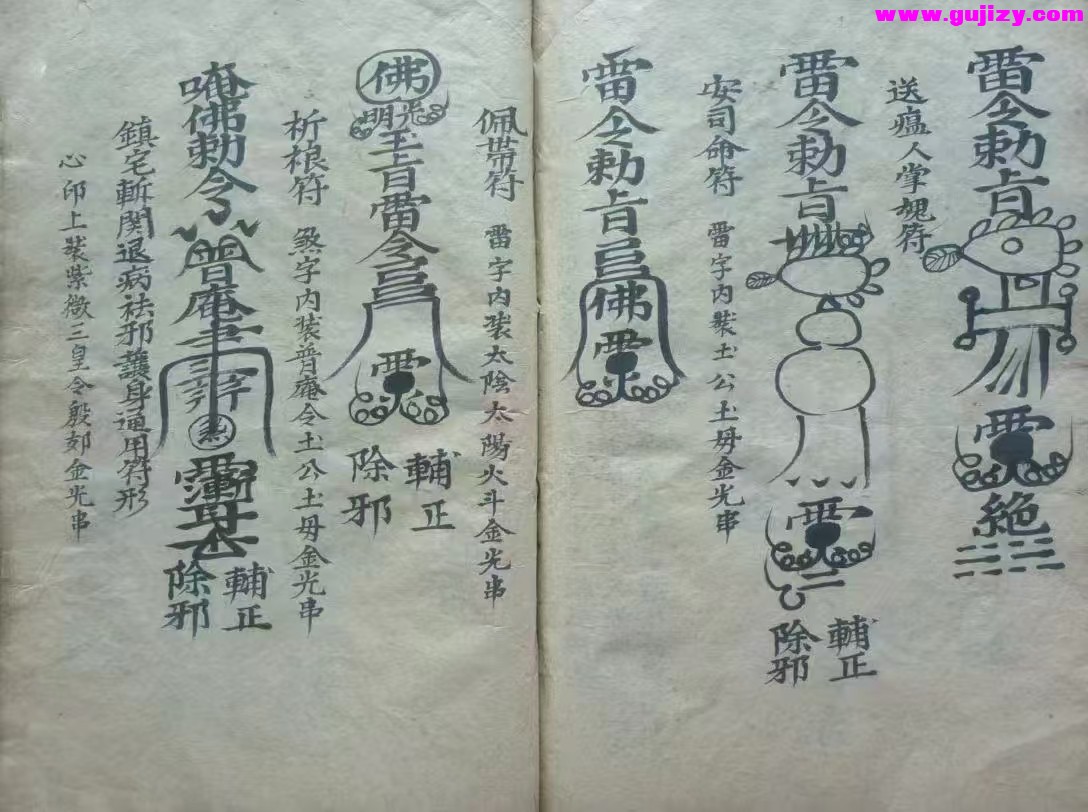 www.gujizy.com
雷令勅旨
絶
送瘟人掌䰟符
雷令勅旨
輔正
除邪
安司命符 雷字内裝土公土母金光串
雷令勅旨
佛
佩帶符 雷字内装太陰太陽火斗金光串
佛
光明
玉旨雷令
輔正
除邪
祈禳符 煞字内装普庵令土公土母金光串
唵佛勅令
普庵
輔正
除邪
鎮宅斬関退病祛邪護身通用符形
心印上裝紫微三皇令殷郊金光串